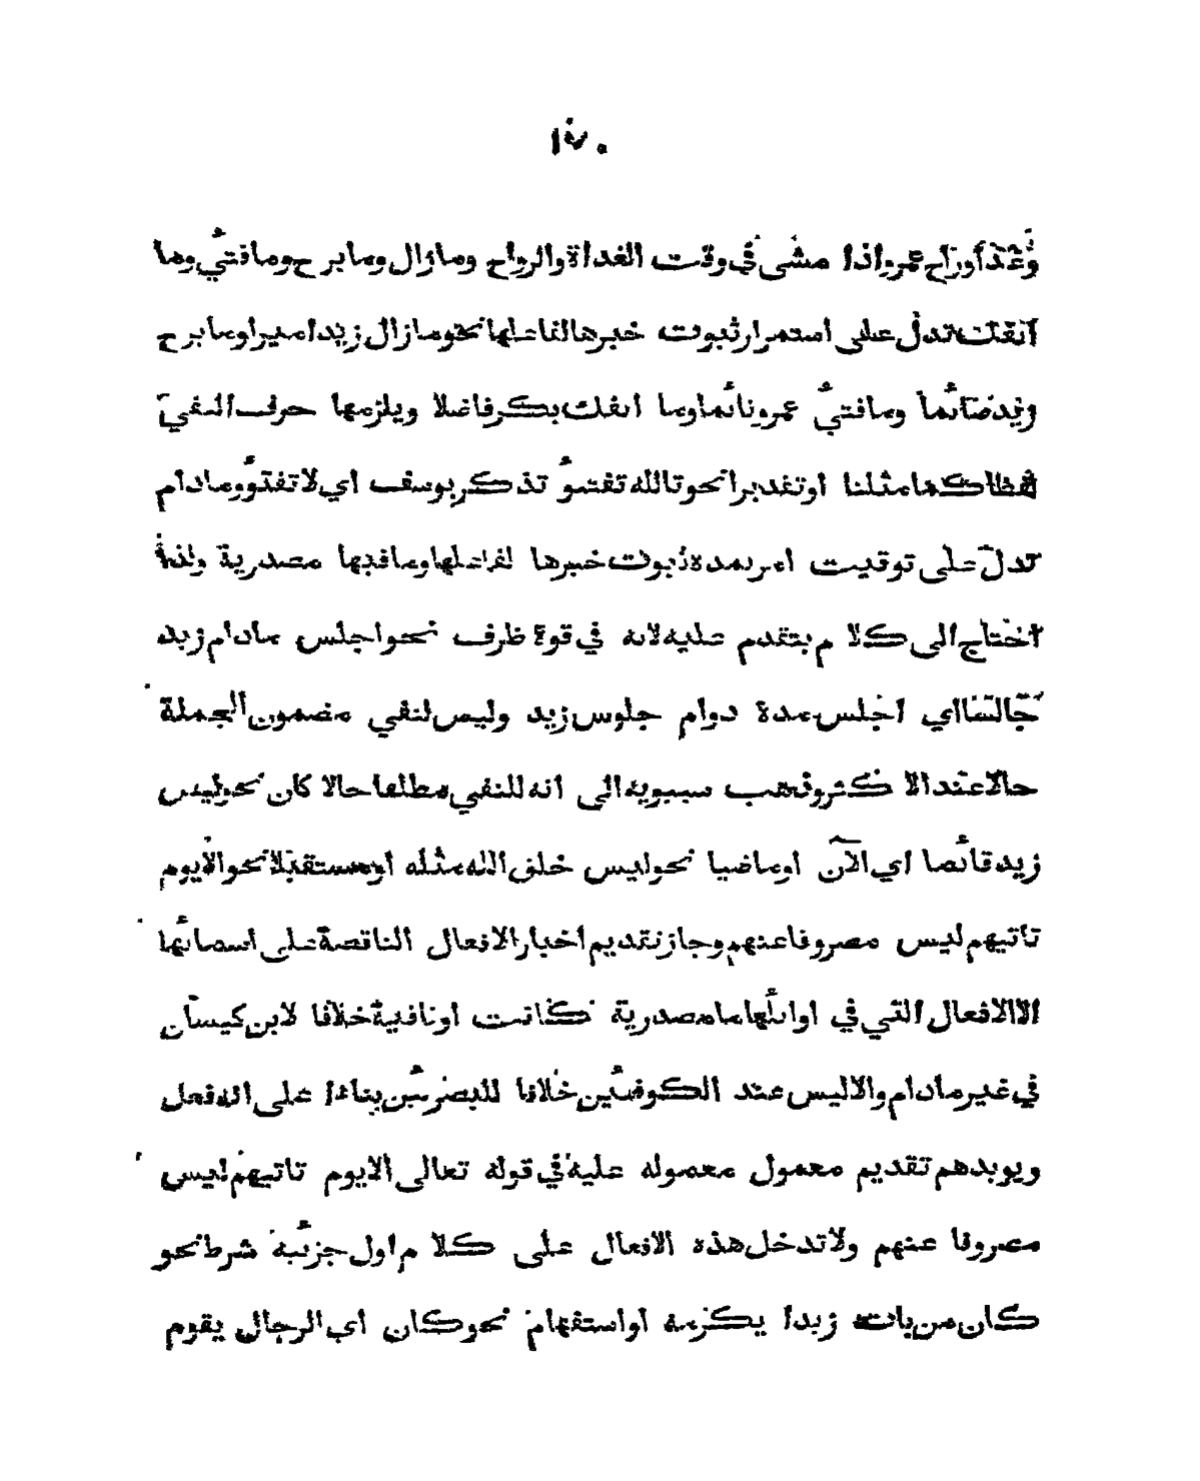 ١٧٠
وغدا وراح عمرو اذا مشى في وقت الغداة والرواح وما زال وما برح وما فتئ وما
انفك تدل على استمرار ثبوت خبرها لفاعلها نحو ما زال زيد اميرا وما برح
زيد صائما وما فتئ عمرو نائما وما انفك بكر فاضلا ويلزمها حرف النفي
لفظا كما مثلنا او تقديرا نحو تالله تفتؤ تذكر يوسف اي لا تفتؤ وما دام
تدل على توقيت امر بمدة ثبوت خبرها لفاعلها وما فيها مصدرية ولذا
احتاج الى كلام يتقدم عليه لانه في قوة ظرف نحو اجلس ما دام زيد
جالسا اي اجلس مدة دوام جلوس زيد وليس لنفي مضمون الجملة
حالا عند الاكثر وذهب سيبويه الى انه للنفي مطلقا حالا كان نحو ليس
زيد قائما اي الآن او ماضيا نحو ليس خلق الله مثله او مستقبلا نحو الا يوم
تاتيهم ليس مصروفا عنهم وجاز تقديم اخبار الافعال الناقصة على اسمائها
الا الافعال التي في اوائلها ما مصدرية كانت او نافية خلافا لابن كيسان
في غير ما دام والا ليس عند الكوفيين خلافا للبصريين بناءا على انه فعل
ويويدهم تقديم معمول معموله عليه في قوله تعالى الا يوم تاتيهم ليس
مصروفا عنهم ولا تدخل هذه الافعال على كلام اول جزئيه شرط نحو
كان من يات زيدا يكرمه او استفهام نحو كان اي الرجال يقوم